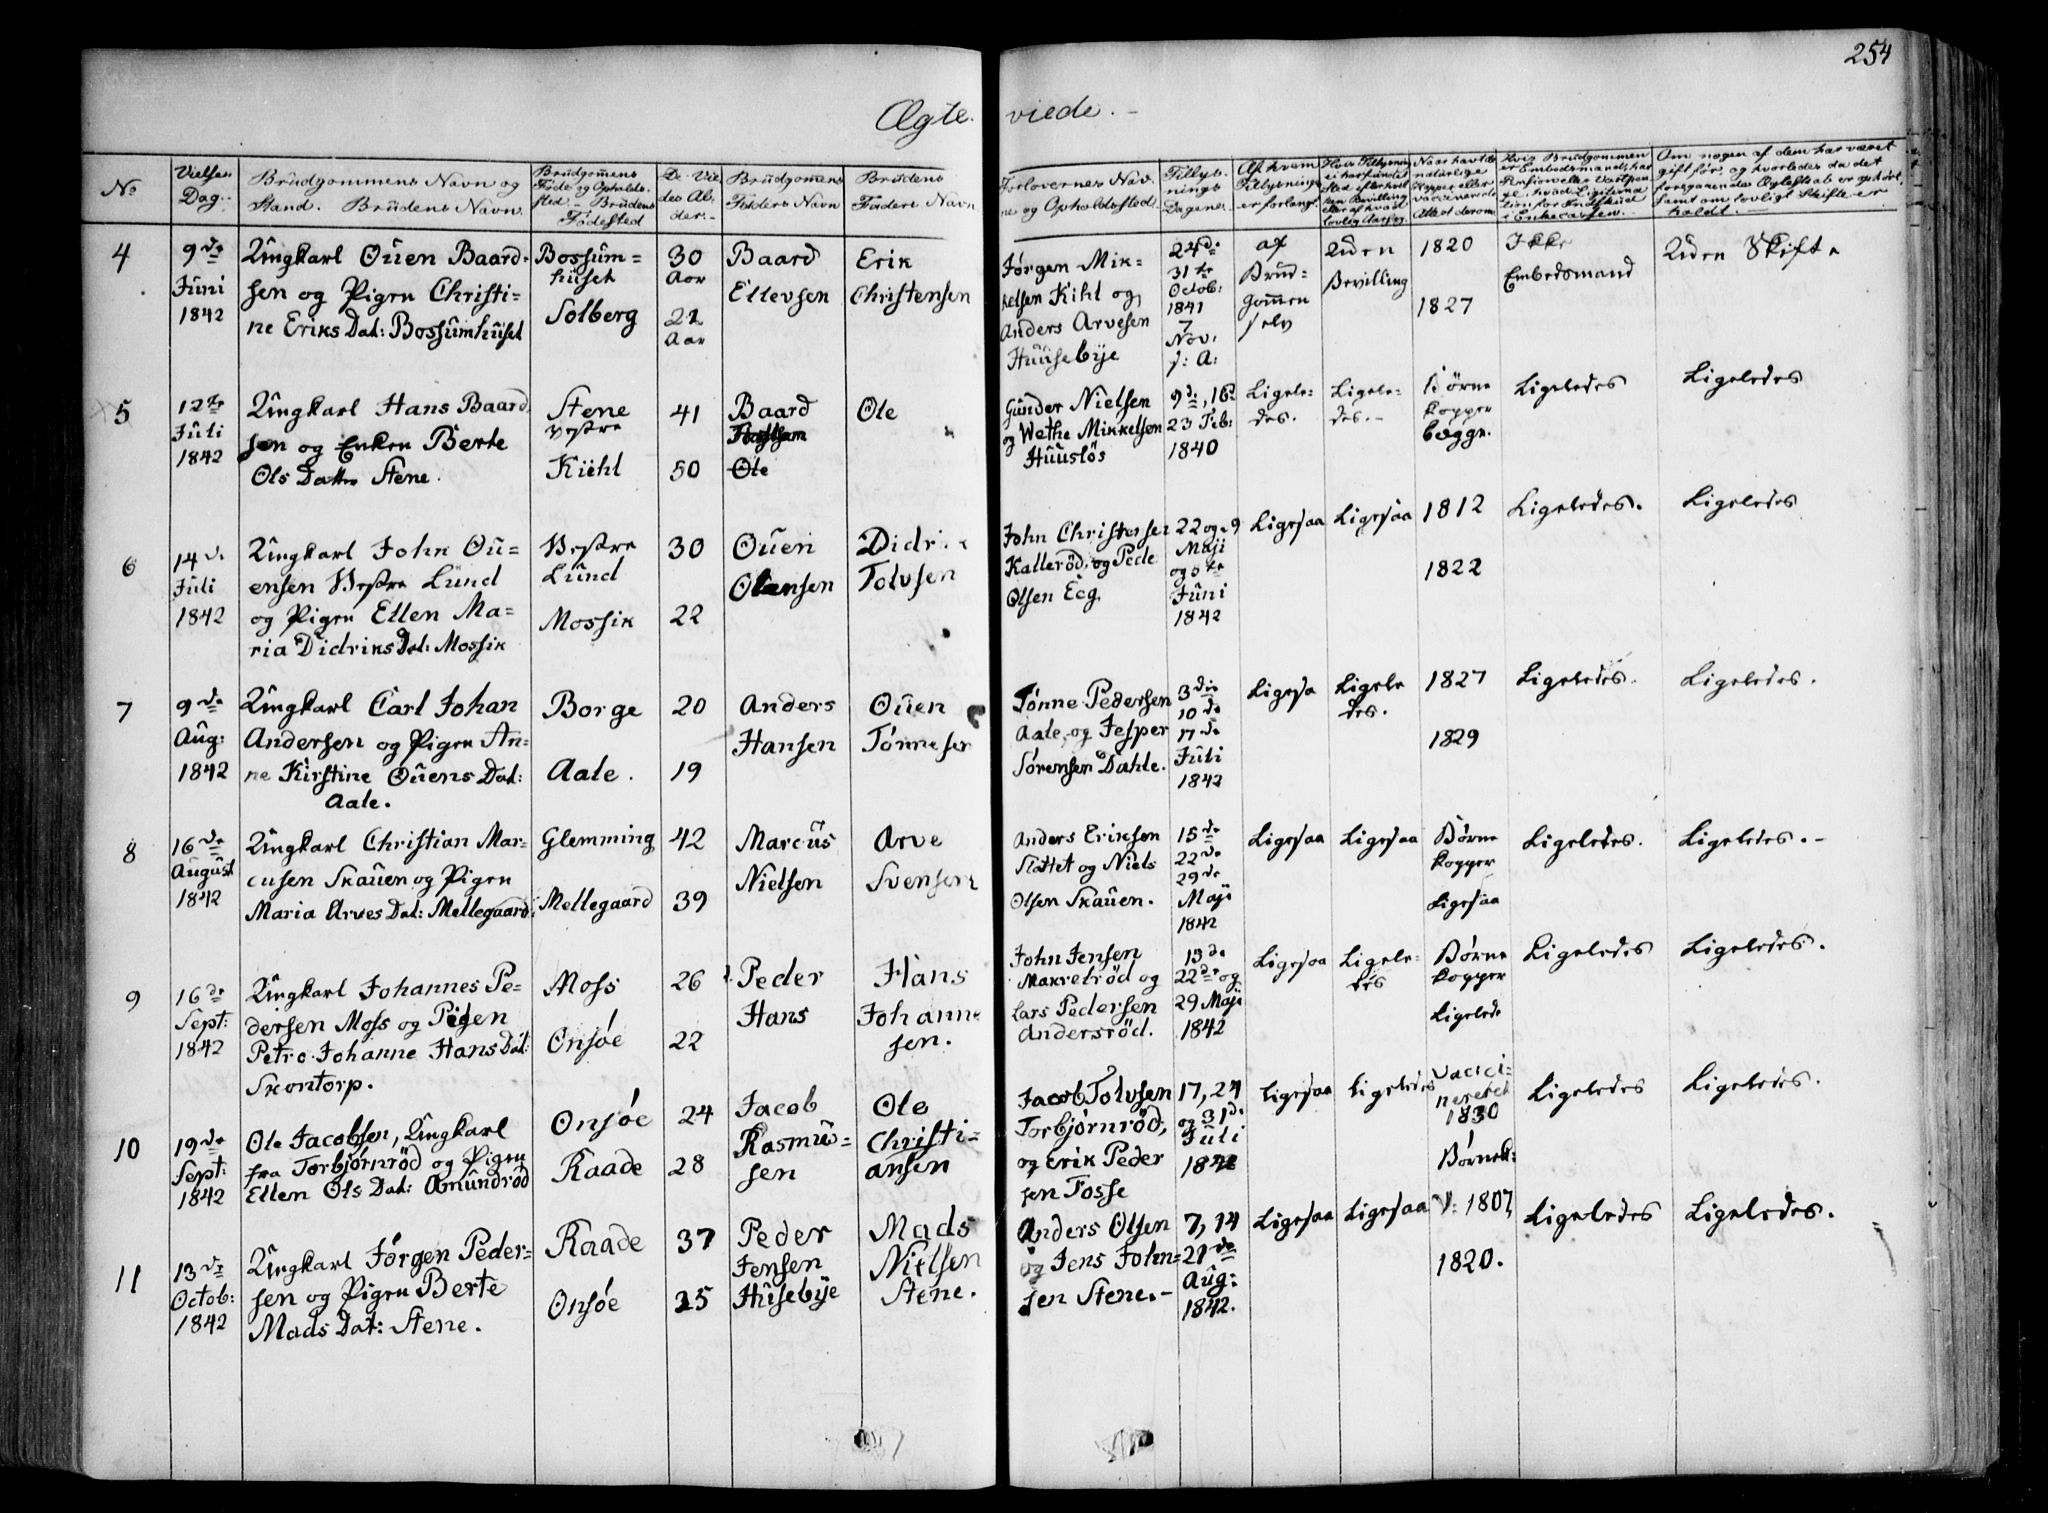 254
Ægte viede. –
No
Vielses Dag.
Brudgommens Navn og Stand. Brudens Navn.
Brudgommens Føde og Opholdssted. – Brudens Fødested
De Viedes Alder.
Brudgommens Faders Navn
Brudens Faders Navn
Forlovernes Navne og Opholdssted.
Tillysnings Dagene.
Af hvem Tillysningen er forlangt.
4
9de
Juni
1842
Ungkarl Ouen Baard-
sen og Pigen Christi-
ne Eriks Dat: Bossumhuset
Bossum-
huset
Solberg
30
Aar
22
Aar
Baard
Ellevsen
Erik
Christensen
Jørgen Mik-
kelsen Kihl og
Anders Arvesen
Huusebye
24de
31te
Octob:
1841
7
Nov:
s: A:
af
Brud-
gommen
selv
Uden
Bevilling
1820
1827
Ikke
Embedsmand
Uden Skifte
5
12te
Juli
1842
Ungkarl Hans Baard-
sen og Enken Berte
Ols Datter Stene.
Stene
vestre
Kiehl
41
50
Baard
Ole
Ole
Gunder Nielsen
og Wethe Mikkelsen
Huusløs
9de, 16de
23 Feb:
1840
Ligele-
des.
Ligele-
des. –
Børne
kopper
begge.
Ligeledes
Ligeledes
6
14de
Juli
1842
Ungkarl John Ou-
ensen Vestre Lund
og Pigen Ellen Ma-
ria Didriks Dat: Mossik
Vestre
Lund
Mossik
30
22
Ouen
Olensen
Didrik
Tolvsen
John Christensen
Kallerød, og Peder
Olsen Eeg.
22 og 29
Maji
og 5te
Juni
1842
Ligesaa
Ligesaa
1812
1822
Ligeledes.
Ligeledes
7
9de
Aug:
1842
Ungkarl Carl Johan
Andersen og Pigen An-
ne Kirstine Ouens Dat:
Aale.
Borge
Aale.
20
19
Anders
Hansen
Ouen
Tønnesen
Tønne Pedersen
Aale, og Jesper
Sørensen Dahle.
3die
10de
17de
Juli
1842
Ligesa
Ligele
des.
1827
1829
Ligeledes.
Ligeledes.
8
16de
August
1842
Ungkarl Christian Mar-
cusen Skauen og Pigen
Maria Arves Dat: Mellegaard
Glemming
Mellegaard
42
39
Marcus
Nielsen
Arve
Svensen
Anders Eriksen
Slottet og Niels
Olsen Skauen.
15de
22de
29de
Maji
1842
Ligesaa
Ligesaa
Børne
kopper
Ligesaa
Ligeledes.
Ligeledes. –
9
16de
Sept:
1842
Ungkarl Johannes Pe-
dersen Moss og Pigen
Petro Johanne Hans Dat:
Skontorp.
Moss
Onsøe
26
22
Peder
Hans
Hans
Johanne
sen.
John Jensen
Makrerød og
Lars Pedersen
Andersrød.
13de
22de og
29 Maji
1842
Ligesaa
Ligele-
des
Børne
kopper
Ligelede
Ligeledes
Ligeledes.
10
19de
Sept:
1842
Ole Jacobsen, Ungkarl
fra Torbjørnrød og Pigen
Ellen Ols Dat: Amundrød
Onsøe
Raade
24
28
Jacob
Rasmus-
sen
Ole
Christi-
ansen
Jacob Tolvsen
Torbjørnrød,
og Erik Peder
sen Fosse
17, 24
og 31de
Juli
1842
Ligesaa
Ligeledes
Vacci-
neret
1830
Børnek:
Ligeledes
Ligeledes.
11
13de
Octob:
1842
Ungkarl Jørgen Peder-
sen og Pigen Berte
Mads Dat: Stene.
Raade
Onsøe
37
25
Peder
Jensen
Husebije
Mads
Nielsen
Stene.
Anders Olsen
og Jens John-
sen Stene. –
7, 14
21de
Aug:
1842.
Ligesaa
Ligesaa
V: 1807,
1820.
Ligeledes
Ligeledes.